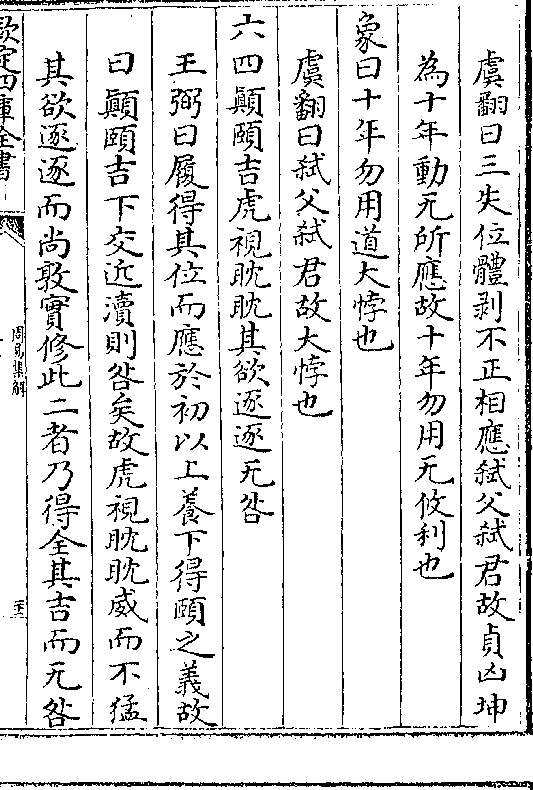 虞翻曰三失位體剥不正相應弑父弑君故貞凶坤
為十年動无所應故十年勿用无攸利也
象曰十年勿用道大悖也
虞翻曰弑父弑君故大悖也
六四顚頤吉虎視眈眈其欲逐逐无咎
王弼曰履得其位而應於初以上養下得頤之義故
曰顚頤吉下交近瀆則咎矣故虎視眈眈威而不猛
其欲逐逐而尚敦實修此二者乃得全其吉而无咎
欽定四庫全書
周易集解